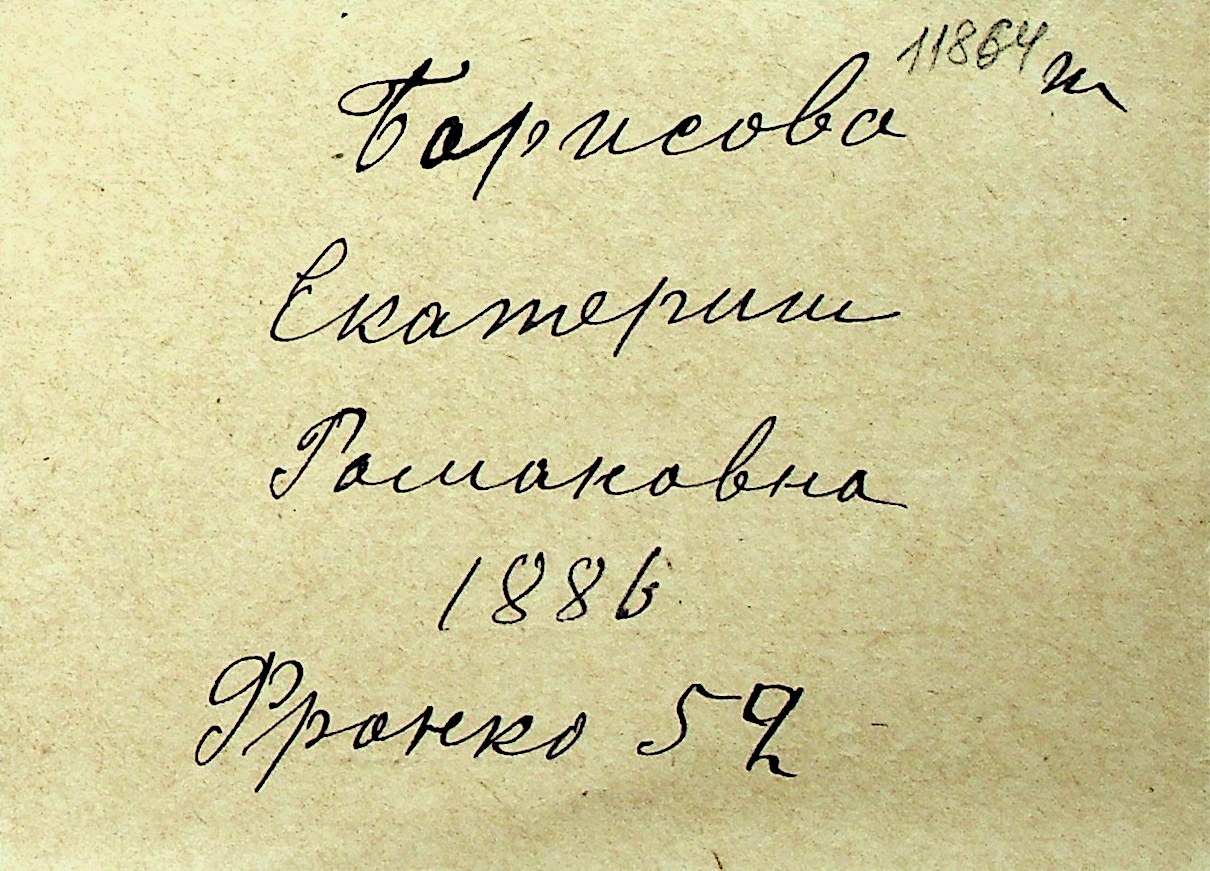 11864 т
Борисова
Екатерина
Романовна
1886
Франко 52